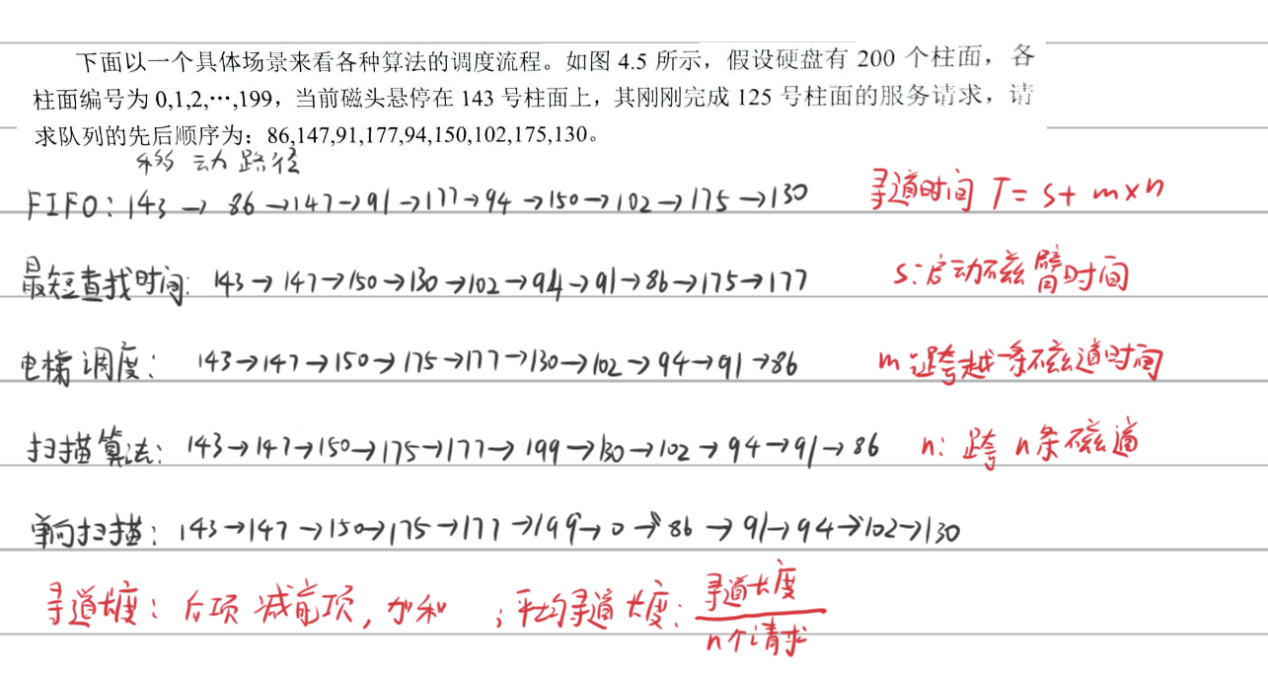 下面以一个具体场景来看各种算法的调度流程。如图 4.5 所示，假设硬盘有 200 个柱面，各
柱面编号为 0,1,2,…,199，当前磁头悬停在 143 号柱面上，其刚刚完成 125 号柱面的服务请求，请
求队列的先后顺序为：86,147,91,177,94,150,102,175,130。
移动路径
FIFO：143 → 86 →147→91→177→94→150→102→175→130
寻道时间 T = s + m×n
最短查找时间：143→147→150→130→102→94→91→86→175→177
s：启动磁臂时间
电梯调度：143→147→150→175→177→130→102→94→91→86
m：跨越一条磁道时间
扫描算法：143→147→150→175→177→199→130→102→94→91→86
n：跨 n条磁道
单向扫描：143→147→150→175→177→199→0→86→91→94→102→130
寻道长度：后项减前项，加和 ；平均寻道长度：寻道长度
n个请求